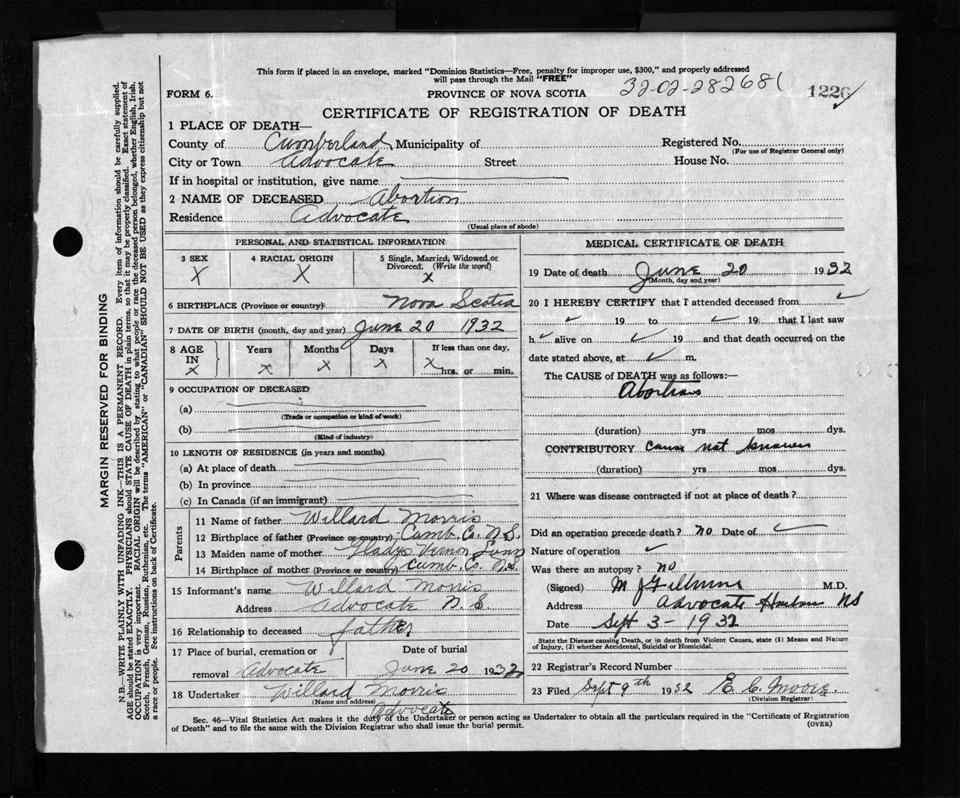 This form if placed in an envelope, marked "Dominion Statistics—Free, penalty for improper use, $300," and properly addressed
will pass through the Mail "FREE"
FORM 6. PROVINCE OF NOVA SCOTIA 32-02-282681 1226
CERTIFICATE OF REGISTRATION OF DEATH
1 PLACE OF DEATH—
County of Cumberland Municipality of Registered No.
(For use of Registrar General only)
City or Town Advocate Street House No.
If in hospital or institution, give name
2 NAME OF DECEASED Abortion
Residence Advocate
(Usual place of abode)
PERSONAL AND STATISTICAL INFORMATION
3 SEX 4 RACIAL ORIGIN 5 Single, Married, Widowed or
Divorced. (Write the word)
X X X
6 BIRTHPLACE (Province or country) Nova Scotia
7 DATE OF BIRTH (month, day and year) June 20 1932
8 AGE IN Years Months Days If less than one day,
X X X X X hrs. or min.
9 OCCUPATION OF DECEASED
(a)
(Trade or occupation or kind of work)
(b)
(Kind of industry)
10 LENGTH OF RESIDENCE (in years and months)
(a) At place of death
(b) In province
(c) In Canada (if an immigrant)
Parents
11 Name of father Willard Morris
12 Birthplace of father (Province or country) Cumb. Co. N.S.
13 Maiden name of mother Gladys Vernon
14 Birthplace of mother (Province or country) Cumb. Co. N.S.
15 Informant's name Willard Morris
Address Advocate N.S
16 Relationship to deceased father
17 Place of burial, cremation or Date of burial
removal Advocate June 20 1932
18 Undertaker Willard Morris
(Name and address) Advocate
MEDICAL CERTIFICATE OF DEATH
19 Date of death June 20 1932
(Month, day and year)
20 I HEREBY CERTIFY that I attended deceased from
19 to 19 that I last saw
h alive on 19 and that death occurred on the
date stated above, at m.
The CAUSE of DEATH was as follows:—
Abortion
(duration) yrs mos dys.
CONTRIBUTORY Cause not known
(duration) yrs mos dys.
21 Where was disease contracted if not at place of death?
Did an operation precede death? no Date of
Nature of operation
Was there an autopsy? no
(Signed) M. D.
Address Advocate Harbor NS
Date Sept 3 - 1932
State the Disease causing Death, or in death from Violent Causes, state (1) Means and Nature
of Injury, (2) whether Accidental, Suicidal or Homicidal.
22 Registrar's Record Number
23 Filed Sept 9th 1932 E. C. Moore.
(Division Registrar)
Sec. 46—Vital Statistics Act makes it the duty of the Undertaker or person acting as Undertaker to obtain all the particulars required in the "Certificate of Registration
of Death" and to file the same with the Division Registrar who shall issue the burial permit. (OVER)
MARGIN RESERVED FOR BINDING
N.B.—WRITE PLAINLY WITH UNFADING INK—THIS IS A PERMANENT RECORD. Every item of information should be carefully supplied.
AGE should be stated EXACTLY. PHYSICIANS should STATE CAUSE OF DEATH in plain terms, so that it may be properly classified. Exact statement of
OCCUPATION is very important. RACIAL ORIGIN will be described by stating to what people or race the deceased person belonged, whether English, Irish,
Scotch, French, German, Russian, Ruthenian, etc. The terms "AMERICAN" or "CANADIAN" SHOULD NOT BE USED as they express citizenship but not
a race or people. See instructions on back of Certificate.